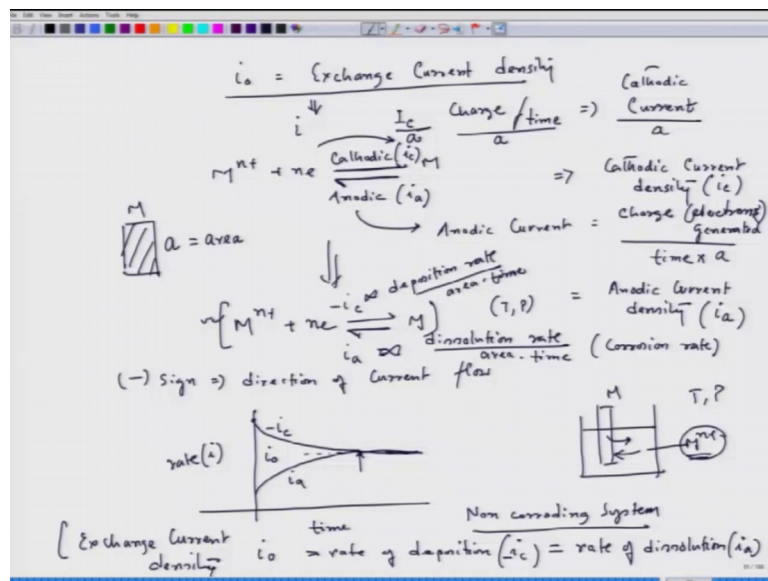 Edit View Insert Actions Tools Help
i₀ = Exchange Current density
⇓
i
I_c / a
Charge / time / a => Cathodic Current / a
M^n+ + ne ⇌ M
Cathodic (i_c)
Anodic (i_a)
=> Cathodic Current density (i_c)
→ Anodic Current = Charge (electrons generated) / time × a
M
a = area
= Anodic Current density (i_a)
-i_c ∝ deposition rate / area . time
{ M^n+ + ne ⇌ M } (T, P)
i_a ∝ dissolution rate / area . time (Corrosion rate)
(-) Sign => direction of Current flow
M T, P
M^n+
rate (i)
-i_c
i₀
i_a
time
Non corroding System
[ Exchange Current density i₀ = rate of deposition (-i_c) = rate of dissolution (i_a)